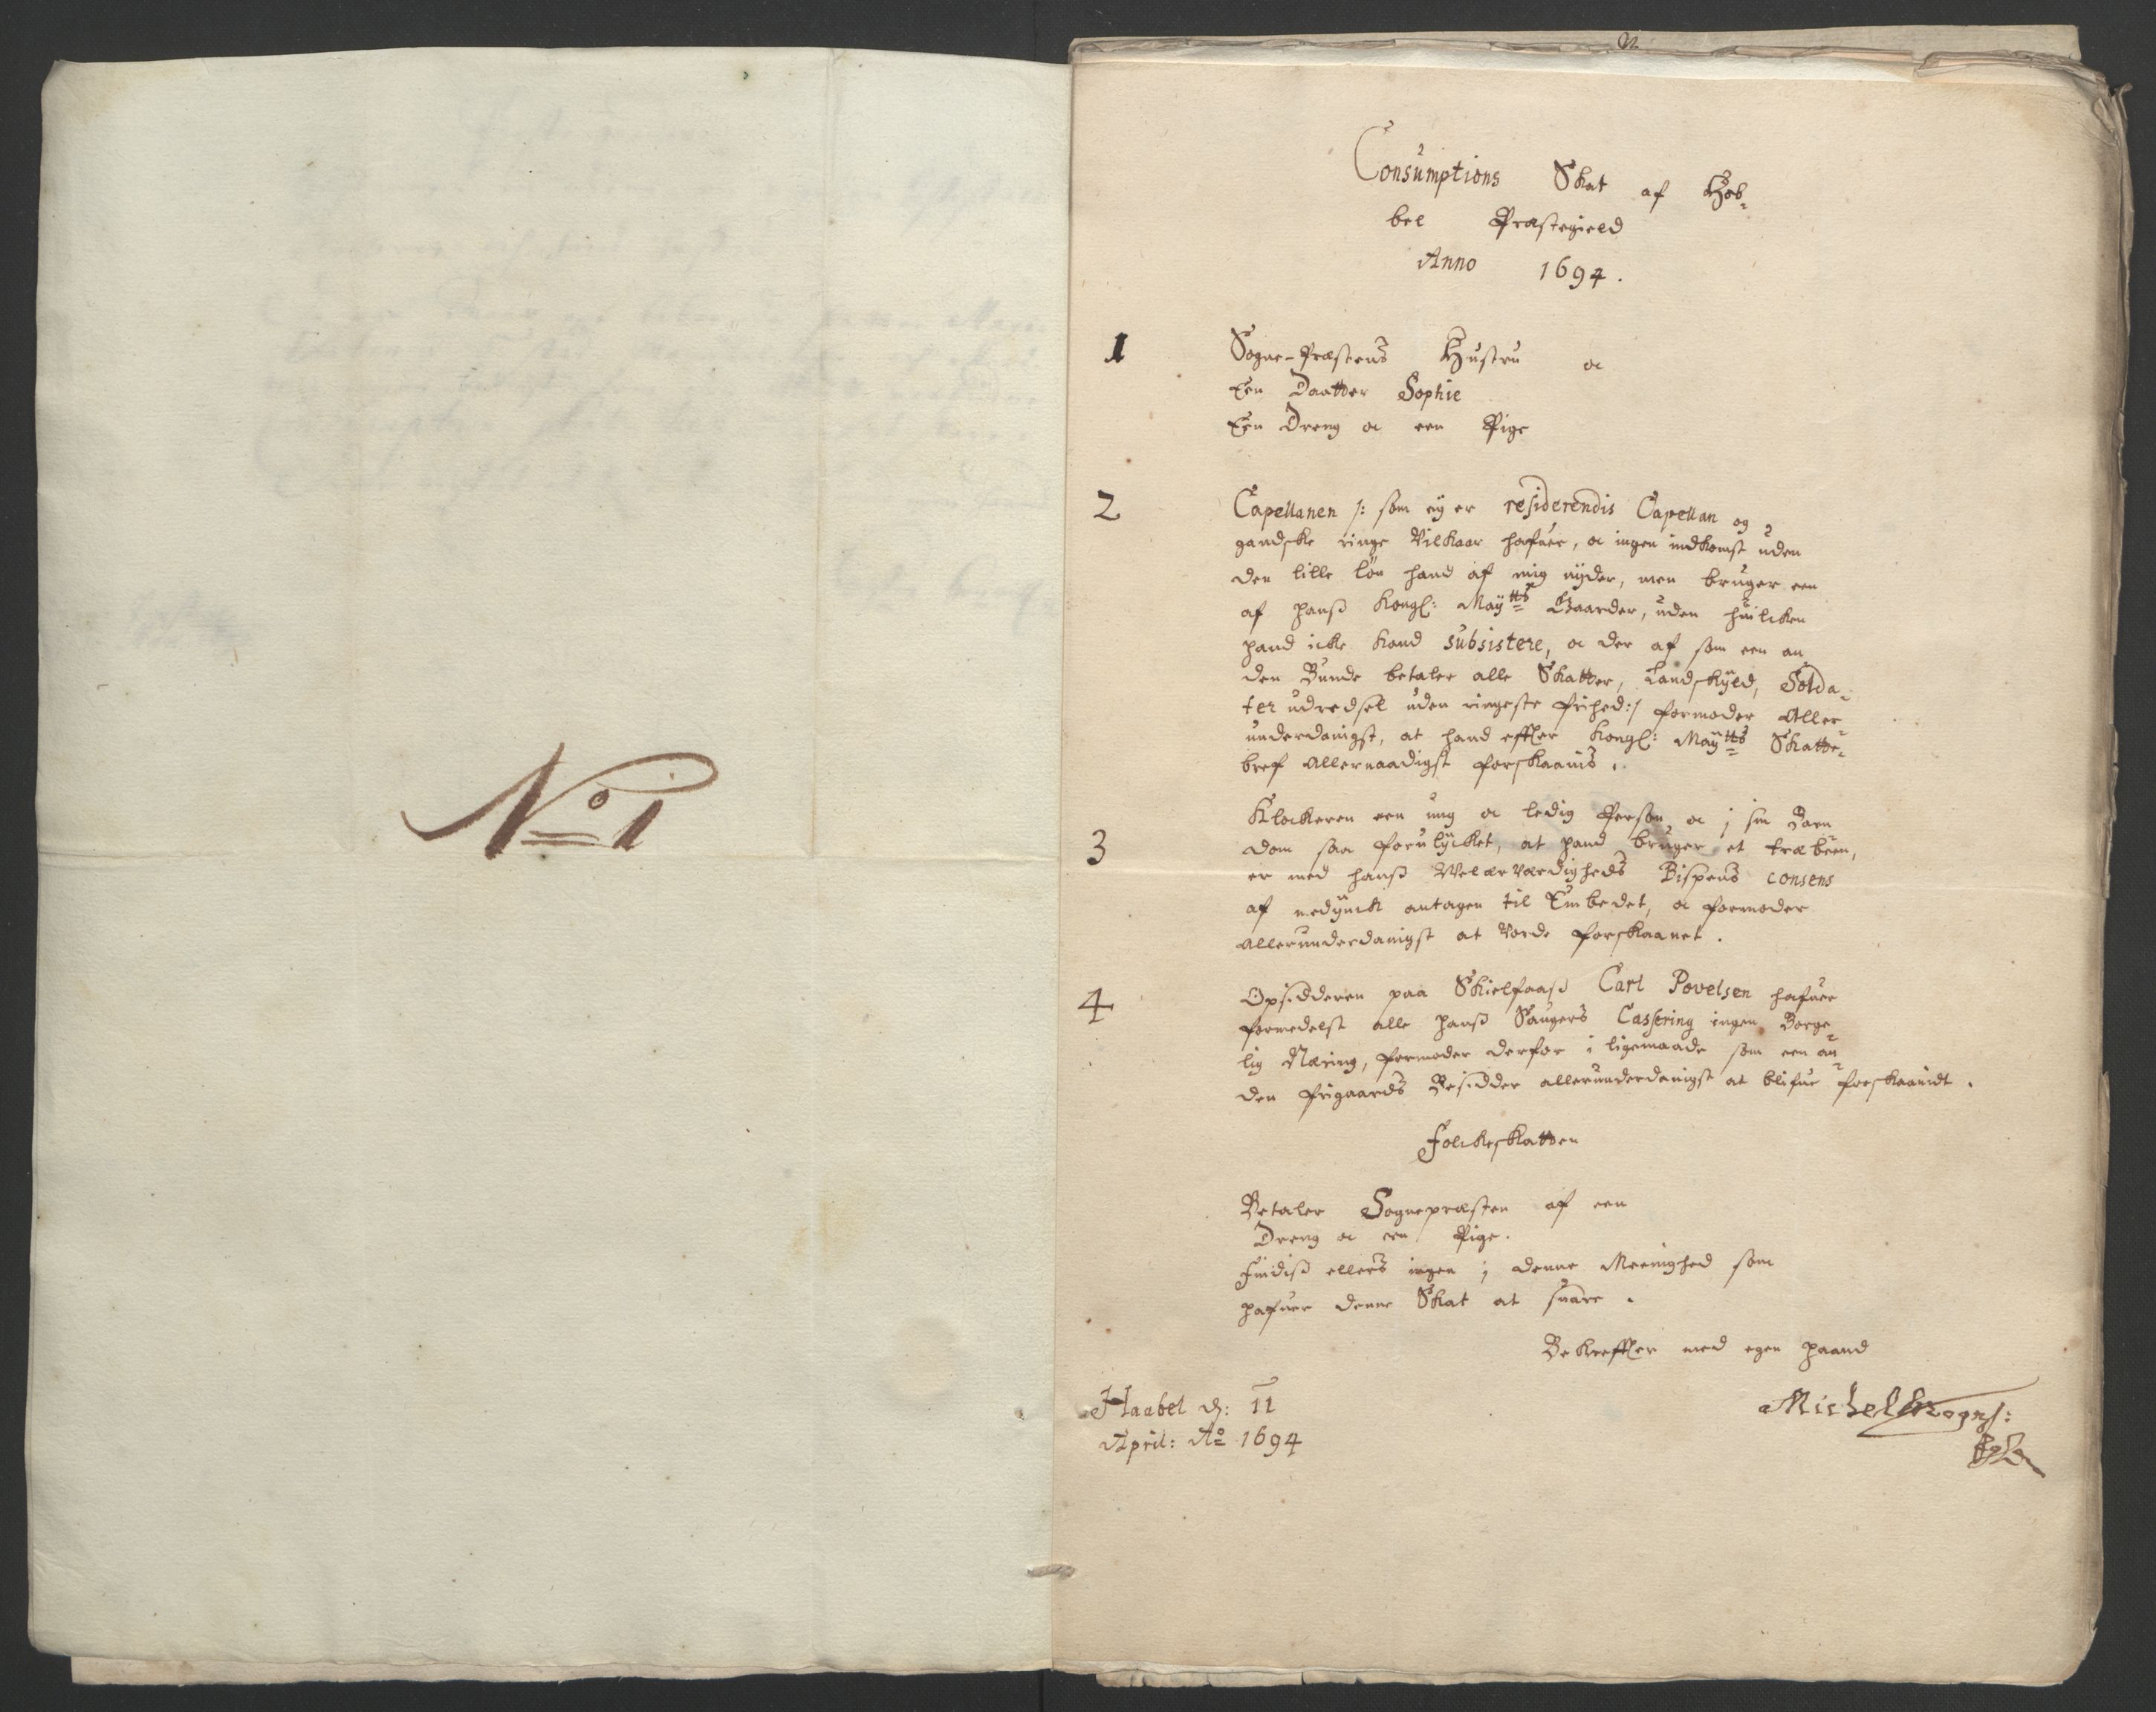 No 1
Consumptions Skat af Hob-
bel Præstegield
Anno 1694.
1
Sogne-Præstens Hustru oc
Een Daatter Sophie
Een Dreng oc een Pige
2
Capellanen /: som ey er residerendis Capellan og
gandske ringe Vilkaar hafuer, oc ingen indkomst uden
den lille løn hand af mig nyder, men bruger een
af hanß Kongl: Maÿtts Gaarder, uden huilcken
hand icke kand subsistere, oc der af som een an
den Bunde betaler alle Skatter, Landskÿld, Solda-
ter udredsel uden ringeste frihed :/ formoder Aller-
underdanigst, at hand effter Kongl: Maÿtts Skatte-
bref Allernaadigst forskaanis.
3
Klockeren een ung oc ledig Person oc j sin Barn
dom saa forulÿcket, at hand bruger et træbeen,
er med hanß Welærværdigheds Bispens consens
af medÿnck antagen til Embedet, oc formoder
Allerunderdanigst at Vorde forskaanet.
4
Opsidderen paa Skielfaaß Carl Povelsen hafuer
formedelst alle hanß Saugers Cassering ingen Borge-
lig Næring, formoder derfor i ligemaade som een an-
den frigaards Besidder allerunderdanigst at blifue forskaanidt.
Folckeskatten
Betaler Sognepræsten af een
Dreng oc een Pige.
Findiß ellers ingen j denne Meenighed som
hafuer denne Skat at suare.
Bekreffter med egen haand
Haabel d: 11
April: Ao 1694
Michel